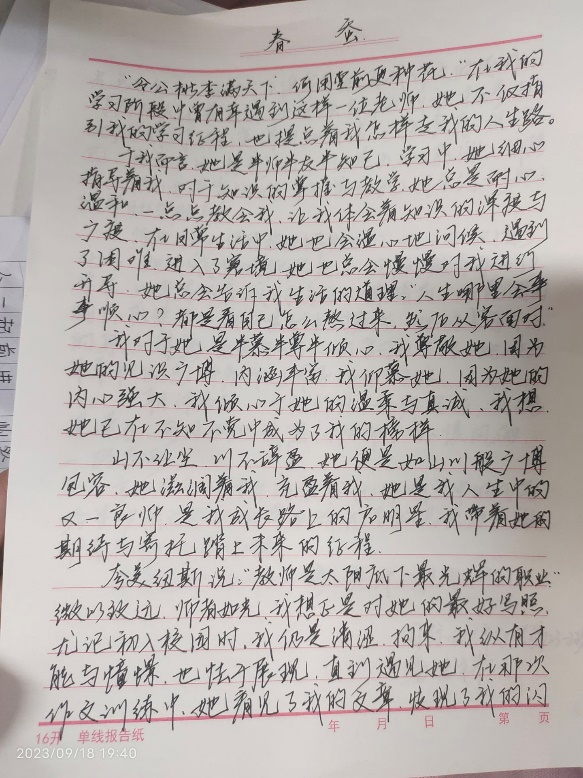 春 蚕
“令公桃李满天下，何用堂前更种花。”在我的
学习阶段中曾有幸遇到这样一位老师，她不仅指
引我的学习征程，也提点着我怎样走我的人生路。
于我而言，她是半师半友半知己，学习中，她细心
指导着我，对于知识的掌握与教学，她总是耐心、
温和，一点点教会我，让我体会着知识的深揆与
广褒，在日常生活中，她也会温心地问候，遇到
了困难，进入了窘境，她也总会慢慢对我进行
开导，她总会告诉我生活的道理，“人生哪里会事
事顺心？都是看自己怎么熬过来，然后从容面对”
我对于她，是半慕半尊半倾心，我尊敬她，因为
她的见识广博，内涵丰富，我仰慕她，因为她的
内心强大，我倾心于她的温柔与真诚，我想，
她已在不知不觉中成为了我的榜样。
山不让尘，川不辞盈，她便是如山川般广博
包容，她滋润着我，充盈着我，她是我人生中的
又一良师，是我成长路上的启明星，我带着她的
期待与寄托踏上未来的征程。
夸美纽斯说：“教师是太阳底下最光辉的职业”
微以致远，师者如光，我想正是对她的最好写照，
尤记初入校园时，我仍是清涩，拘束，我纵有才
能与憧憬，也怯于展现，直到遇见她，在那次
作文训练中，她看见了我的文章，发现了我的闪
16开 单线报告纸 年 月 日 第 页
2023/09/18 19:40